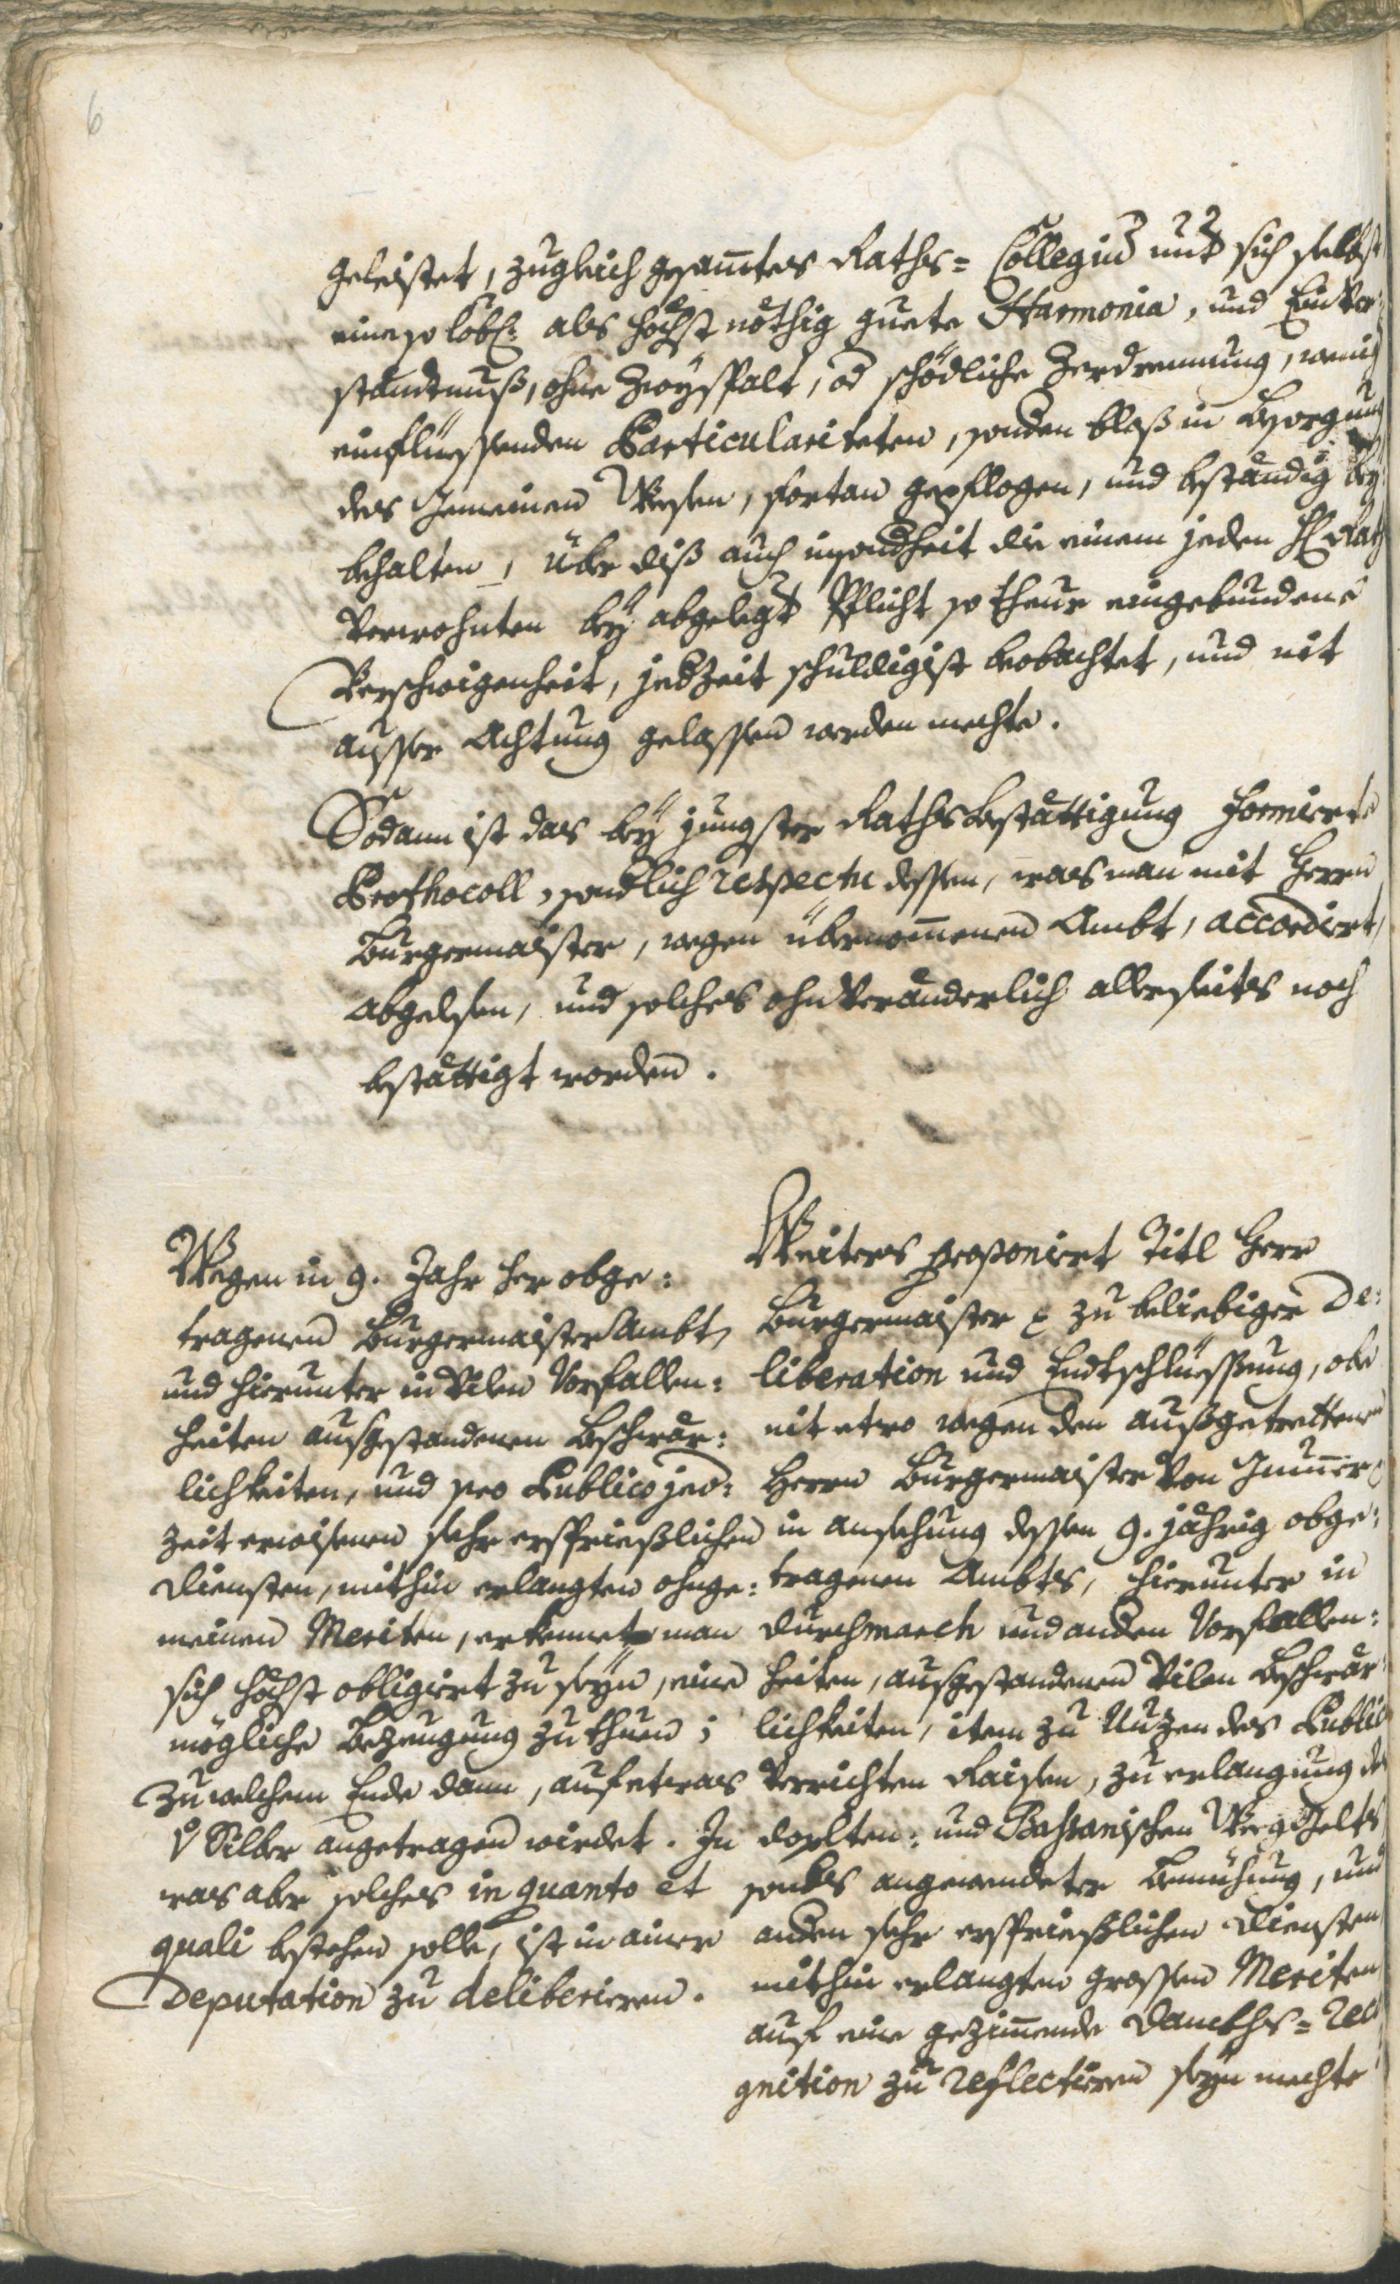 6
geleistet, zugleich gesamtes Raths= Collegiu̅ unt sich selbst
eine so lobl: als höchst nöthig guete Harmonia, und Einver=
ständtnuß, ohne Zweyspalt, od schödliche Zerdrennung, wenig
einflüessenden Particulariteten, sonden bloß in Besorgung
des Gemeinen Wesen, fortan gepflogen, und beständig bey=
behalten, über diß auch insondheit die einem jeden H: Raths
Verwohnten bey abgelegt Pflicht so theur eingebundene
Verschwigenheit, jedzeit schuldigist beobachtet, und nit
ausser Achtung gelassen werden mechte.
Sodann ist das bey jüngster Rathsbestättigung formierte
Prothocoll, sondlich respectu dessen, was man mit Herrn
Burgermaister, wegen übernommenen Ambt, accordirt,
abgelesen, und solches ohnveränderlich allerseits noch
bestättigt worden.
Wegen in 9. Jahr her obge=
tragenen Burgermaister Ambt,
und hierunter in vilen Vorfallen=
heiten ausgestandenen Beschwär=
lichkeiten, und pro Publico jed=
zeit erwisenen sehr ersprießlichen
Diensten, mithin erlangten ohnge=
meinen Meriten, erkennet man
sich höchst obligirt zu seyn, eine
mögliche Bezeugung zu thuen;
zu welchem Ende dann, auf etwas
v Silber angetragen wirdet. In
was aber solches in quanto et
quali bestehen solle, ist in ainer
Deputation zu deliberieren.
Weiters proponirt Titl Herr
Burgermaister zu beliebiger De=
liberation und Endtschlüessung, obe
nit etwo wegen den außgetrettenen
Herrn Burgermaister von
in ansehung dessen 9. jährig obge=
tragenen Ambts, hierunter in
Durchmarch und anden Vorfallen=
heiten, ausgestandenen vilen Beschwär=
lichkeiten, item zu Nuzen des Publici
verrichten Raisen, zu erlangung des
doplten= und Bassanischen Weggelts
sonders angewendeter Bemühung, und
anden sehr ersprießlichen Diensten
mithin erlangten grossen Meriten
auf eine gezimmende Danckhs= Reco
gnition zu reflectieren seyn mechte